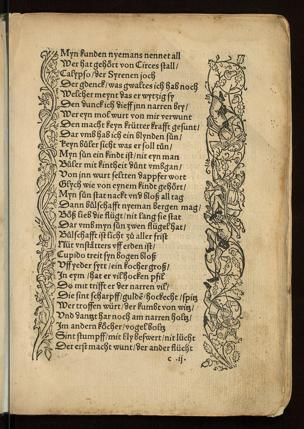 Myn kunden nyemans nennet all
Wer hat gehört von Circes stall/
Calypso/der Syrenen joch
Der gdenck/was gwaltes ich hab noch
Welcher meynt das er wytzig sy
Den dunck ich dieff jnn narren bry/
Wer eyn mol wurt von mir verwunt
Den macht keyn krütter krafft gesunt/
Dar vmb hab ich ein blynden sün/
Keyn büler sieht was er soll tůn/
Myn sün ein kind ist/nit eyn man
Büler mit kintheit dünt vmbgan/
Von jnn wurt seltten dapper wort
Glych wie von eynem kinde gehört/
Myn sün stat nackt vnd bloß all tag
Dann bůlschafft nyeman bergen mag/
Böß lieb die flügt/nit lang sie stat
Dar vmb myn sün zwen flügel hat/
Bůlschafft ist licht zů aller frist
Nüt vnstätters vff erden ist/
Cupido treit syn bogen bloß
Vff yeder sytt/ein kocher groß/
In eym/hat er vil hocken pfil
Do mit trifft er der narren vil/
Die sint scharpff/guldē/hockecht/spitz
Wer troffen würt/der kumbt von witz/
Vnd dantzt har noch am narren holtz/
Im andern köcher/vogel boltz
Sint stumpff/mit bly beswert/nit lücht
Der erst macht wunt/der ander flücht
c .ij.